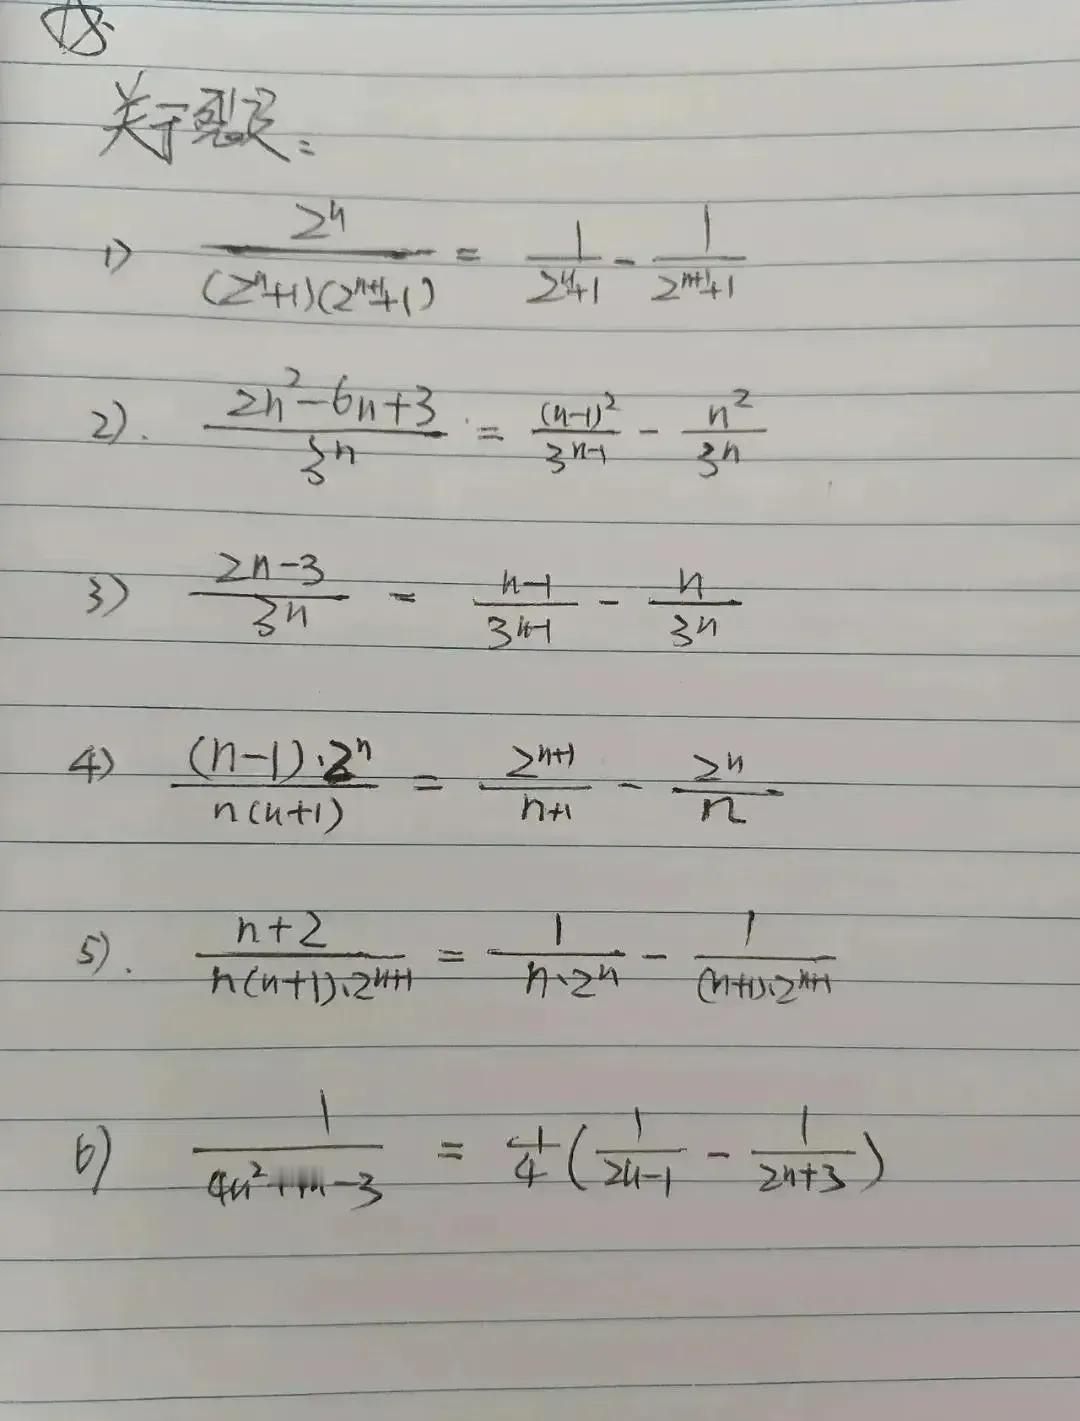 关于裂项:
1) 2^n/((2^n+1)(2^{n+1}+1)) = 1/(2^n+1) - 1/(2^{n+1}+1)
2). (2n^2-6n+3)/3^n = (n-1)^2/3^{n-1} - n^2/3^n
3) (2n-3)/3^n = (n-1)/3^{n-1} - n/3^n
4) ((n-1)·2^n)/(n(n+1)) = 2^{n+1}/(n+1) - 2^n/n
5). (n+2)/(n(n+1)·2^{n+1}) = 1/(n·2^n) - 1/((n+1)·2^{n+1})
6) 1/(4n^2+ -3) = 1/4(1/(2n-1) - 1/(2n+3))